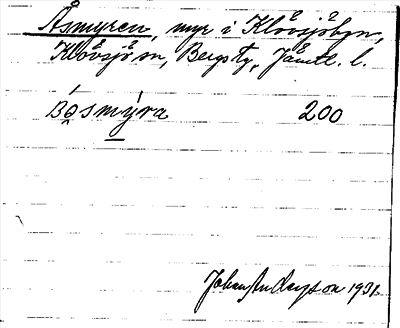 Åsmyren, myr i Klövsjöbyn,
Klövsjö sn, Bergs tg, Jämtl. l.
200
Johan Anderson 1931